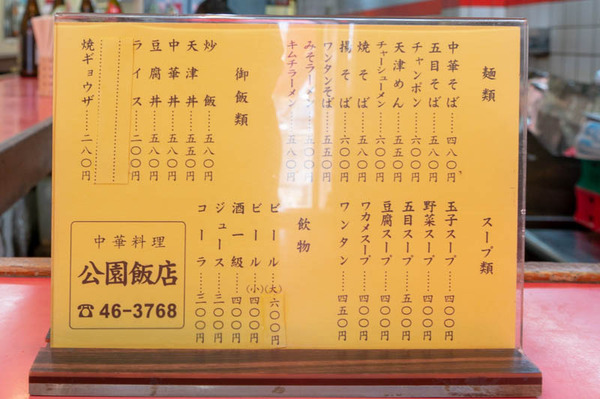 麺類
中華そば……四八〇円
五目そば……五八〇円
チャンポン……六〇〇円
天津めん……五五〇円
チャーシューメン……六〇〇円
焼そば……五八〇円
揚そば……六〇〇円
ワンタンそば……五五〇円
みそラーメン……五〇〇円
キムチラーメン……五八〇円
御飯類
炒飯……五八〇円
天津丼……五五〇円
中華丼……五八〇円
豆腐丼……五八〇円
ライス……二〇〇円
焼ギョウザ……二八〇円
スープ類
玉子スープ……四〇〇円
野菜スープ……四〇〇円
五目スープ……五〇〇円
豆腐スープ……四〇〇円
ワカメスープ……四〇〇円
ワンタン……四五〇円
飲物
ビール(大)……六〇〇円
ビール(小)……四〇〇円
酒一級……四〇〇円
ジュース……三〇〇円
コーラ……三〇〇円
中華料理
公園飯店
☎46-3768